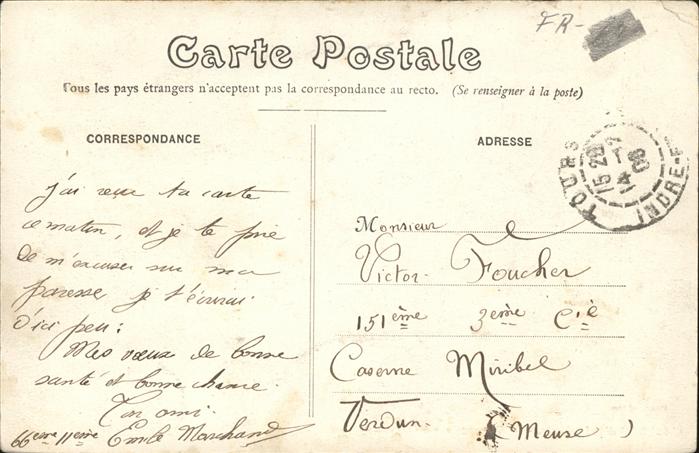 FR-
Carte Postale
Tous les pays étrangers n'acceptent pas la correspondance au recto. (Se renseigner à la poste)
CORRESPONDANCE
j'ai reçu ta carte
ce matin, et je te prie
de m'excuser sur ma
paresse je t'écrirai
d'ici peu :
Mes vœux de bonne
santé et bonne chance.
Ton ami.
66ème 11ème Emile Marchand
ADRESSE
TOURS
15 20
INDRE-E
Monsieur
Victor Foucher
151ème 3ème Cie
Caserne Miribel
Verdun (Meuse)